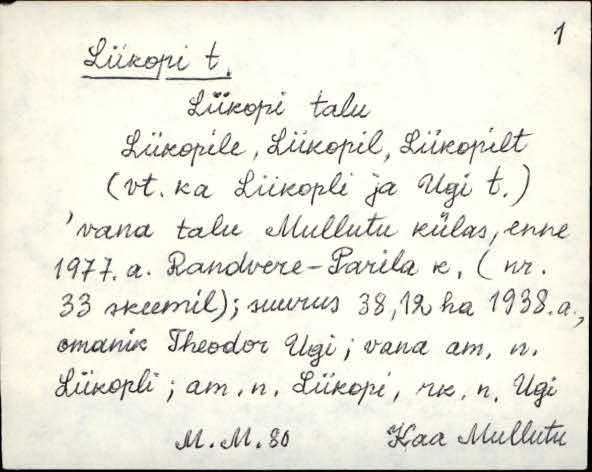 1
Liikopi t.
Liikopi talu
Liikopile, Liikopil, Liikopilt
(vt. ka Liikopli ja Ugi t.)
'vana talu Mullutu külas, enne
1977. a. Randvere-Parila k. (nr.
33 skeemil); suurus 38,12 ha 1938.a.,
omanik Theodor Ugi; vana am. n.
Liikopli; am. n. Liikopi, rk. n. Ugi
M.M.80 Kaa Mullutu